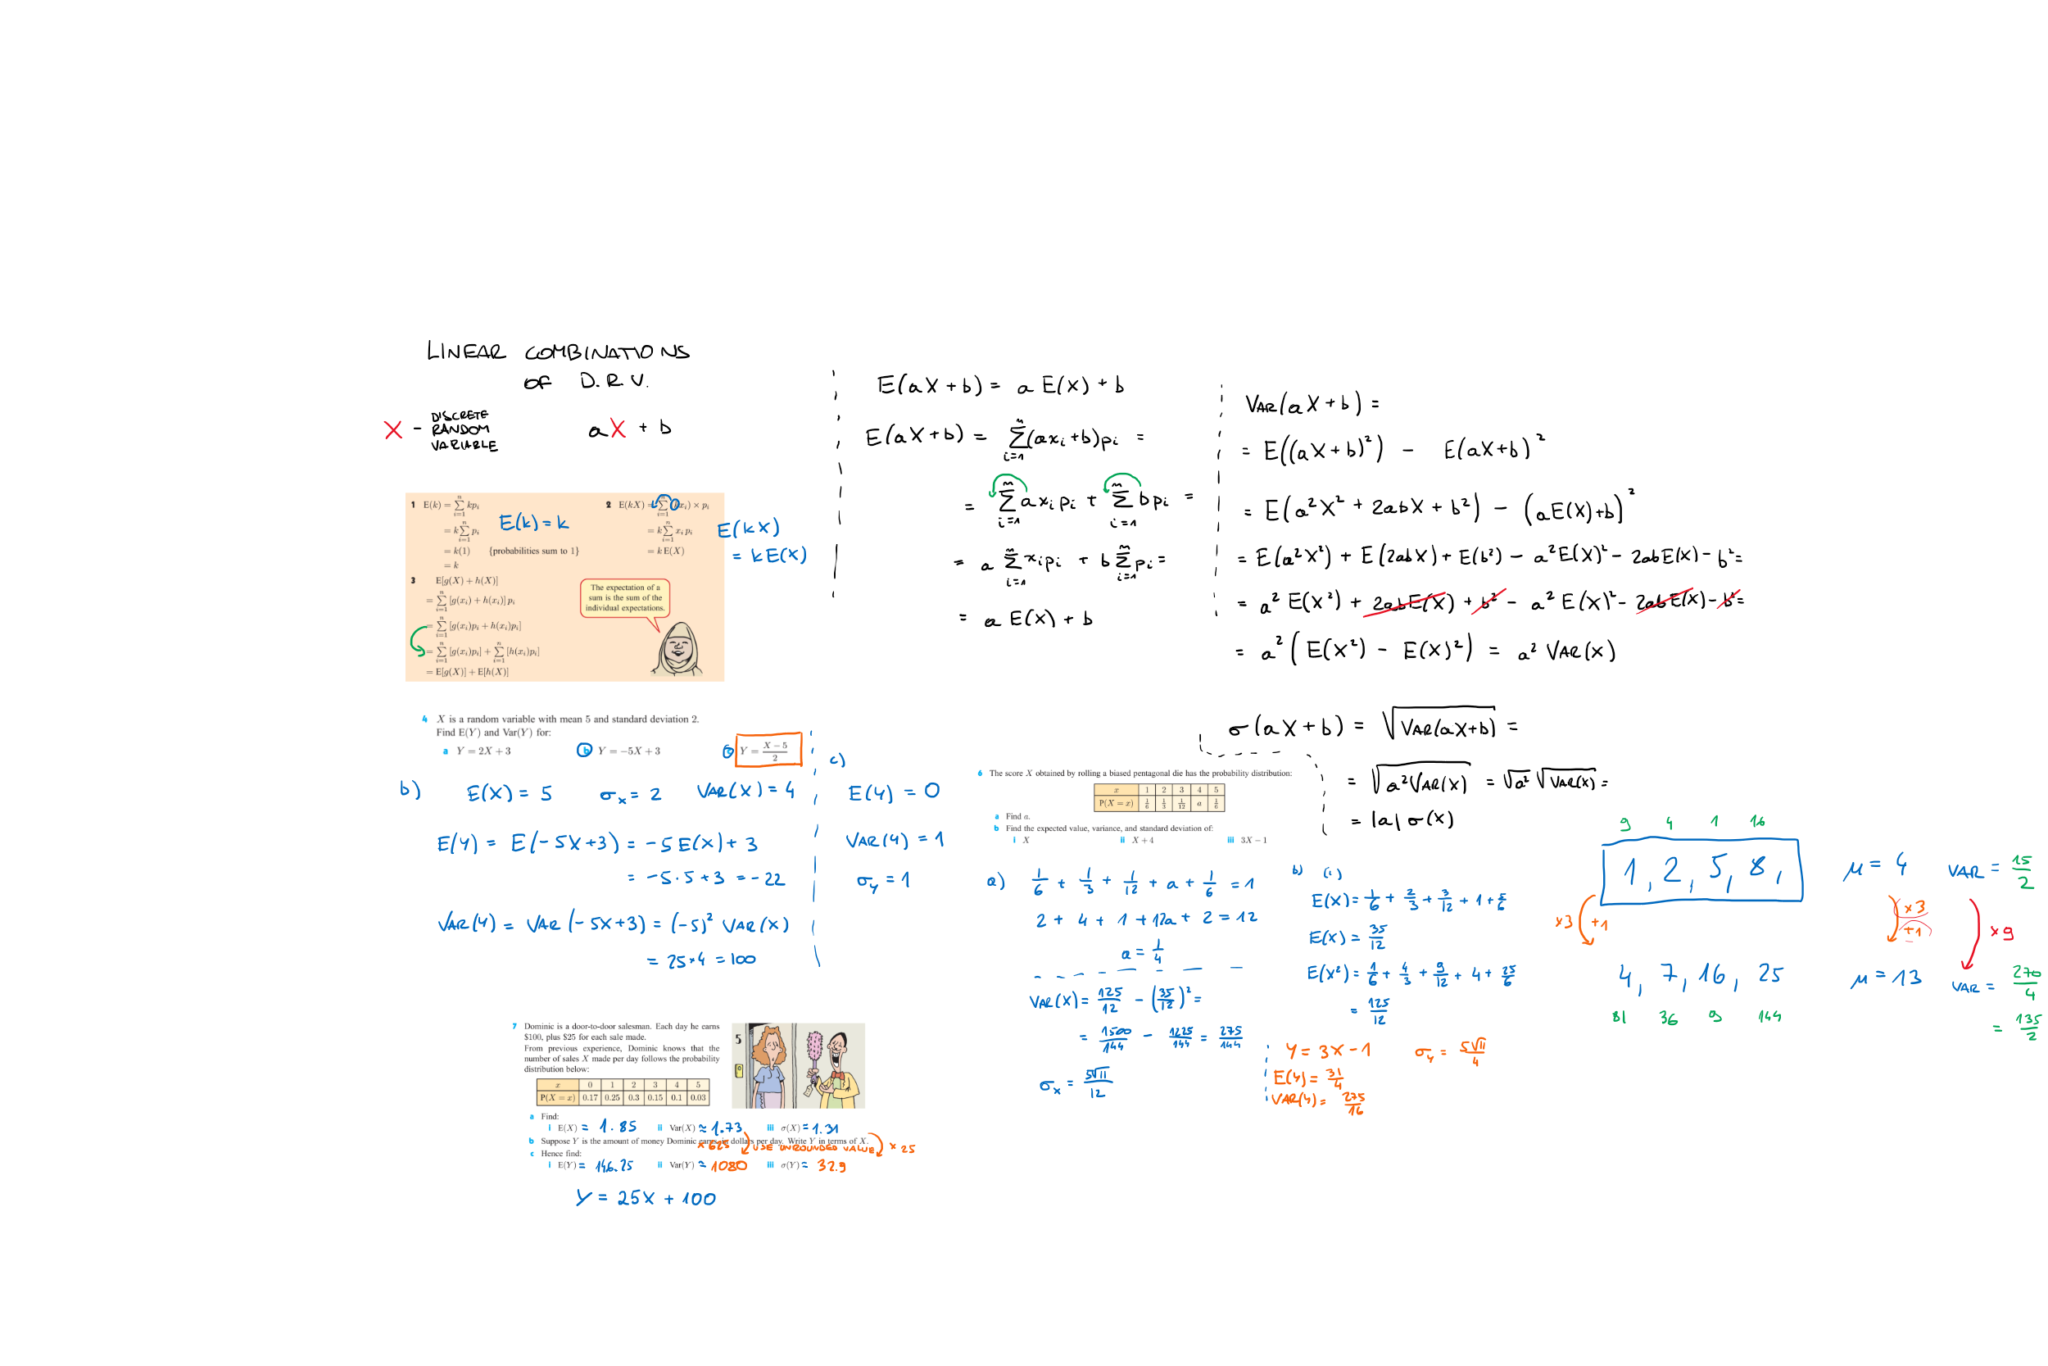 LINEAR COMBINATIONS
OF D.R.V.
X - DISCRETE RANDOM VARIABLE
aX + b
1 E(k) = \sum_{i=1}^{n} kp_i
= k\sum_{i=1}^{n} p_i
= k(1) {probabilities sum to 1}
= k
E(k) = k
2 E(kX) = \sum_{i=1}^{n} (kx_i) × p_i
= k\sum_{i=1}^{n} x_i p_i
= k E(X)
E(kX)
= k E(X)
3 E[g(X) + h(X)]
= \sum_{i=1}^{n} [g(x_i) + h(x_i)] p_i
= \sum_{i=1}^{n} [g(x_i)p_i + h(x_i)p_i]
= \sum_{i=1}^{n} [g(x_i)p_i] + \sum_{i=1}^{n} [h(x_i)p_i]
= E[g(X)] + E[h(X)]
The expectation of a
sum is the sum of the
individual expectations.
4 X is a random variable with mean 5 and standard deviation 2.
Find E(Y) and Var(Y) for:
a Y = 2X + 3 b Y = −5X + 3 c Y = \frac{X − 5}{2}
b) E(X) = 5 σ_x = 2 VAR(X) = 4
E(Y) = E(-5X+3) = -5E(X) + 3
= -5·5+3 = -22
VAR(Y) = VAR(-5X+3) = (-5)² VAR(X)
= 25·4 = 100
c)
E(Y) = 0
VAR(Y) = 1
σ_y = 1
7 Dominic is a door-to-door salesman. Each day he earns
$100, plus $25 for each sale made.
From previous experience, Dominic knows that the
number of sales X made per day follows the probability
distribution below:
x 0 1 2 3 4 5
P(X = x) 0.17 0.25 0.3 0.15 0.1 0.03
5
a Find:
i E(X) = 1.85 ii Var(X) ≈ 1.73 iii σ(X) = 1.31
b Suppose Y is the amount of money Dominic earns in dollars per day. Write Y in terms of X.
×625 USE UNROUNDED VALUE ×25
c Hence find:
i E(Y) = 146.25 ii Var(Y) ≈ 1080 iii σ(Y) ≈ 32.9
Y = 25X + 100
E(aX+b) = a E(X) + b
E(aX+b) = \sum_{i=1}^{n} (ax_i+b)p_i =
= \sum_{i=1}^{n} ax_i p_i + \sum_{i=1}^{n} bp_i =
= a \sum_{i=1}^{n} x_i p_i + b \sum_{i=1}^{n} p_i =
= a E(X) + b
VAR(aX+b) =
= E((aX+b)²) - E(aX+b)²
= E(a²X² + 2abX + b²) - (aE(X)+b)²
= E(a²X²) + E(2abX) + E(b²) - a²E(X)² - 2abE(X) - b² =
= a² E(X²) + 2abE(X) + b² - a² E(X)² - 2abE(X) - b² =
= a² (E(X²) - E(X)²) = a² VAR(X)
σ(aX+b) = \sqrt{VAR(aX+b)} =
= \sqrt{a² VAR(X)} = \sqrt{a²} \sqrt{VAR(X)} =
= |a| σ(X)
6 The score X obtained by rolling a biased pentagonal die has the probability distribution:
x 1 2 3 4 5
P(X = x) 1/6 1/3 1/12 a 1/6
a Find a.
b Find the expected value, variance, and standard deviation of:
i X ii X + 4 iii 3X − 1
a) 1/6 + 1/3 + 1/12 + a + 1/6 = 1
2 + 4 + 1 + 12a + 2 = 12
a = 1/4
VAR(X) = 125/12 - (35/12)² =
= 1500/144 - 1225/144 = 275/144
σ_x = 5√11/12
b) (i)
E(X) = 1/6 + 2/3 + 3/12 + 1 + 5/6
E(X) = 35/12
E(X²) = 1/6 + 4/3 + 9/12 + 4 + 25/6
= 125/12
Y = 3X - 1 σ_y = 5√11/4
E(Y) = 31/4
VAR(Y) = 275/16
9 4 1 16
1, 2, 5, 8, μ = 4 VAR = 15/2
×3 +1 ×3 +1 ×9
4, 7, 16, 25 μ = 13 VAR = 270/4
81 36 9 144 = 135/2